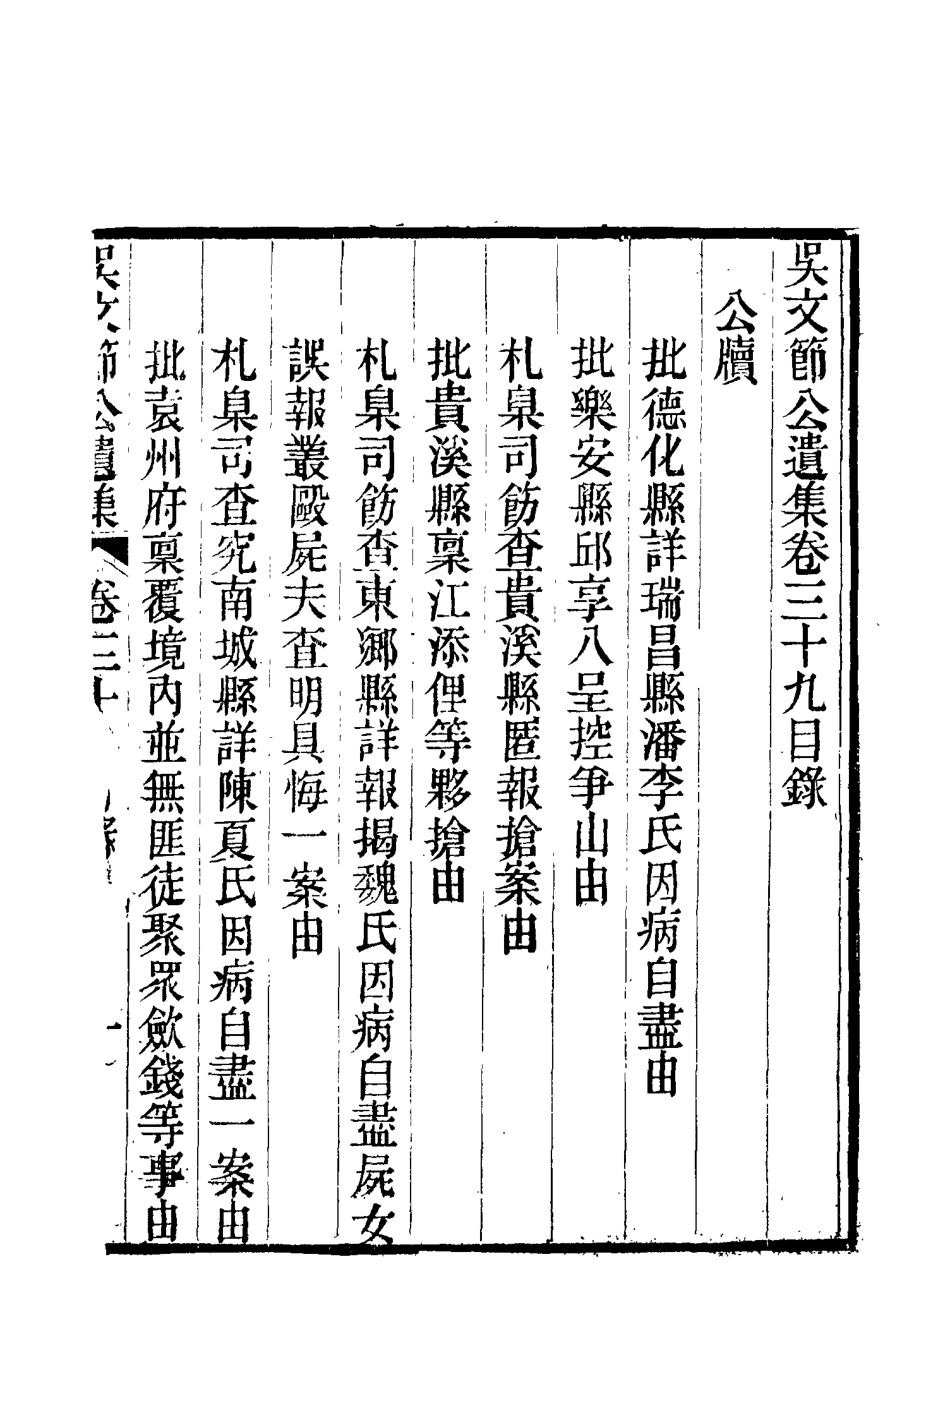 吳文節公遺集卷三十九目錄
公牘
批德化縣詳瑞昌縣潘李氏因病自盡由
批樂安縣邱享八呈控爭山由
札臬司飭查貴溪縣匿報搶案由
批貴溪縣稟江添俚等夥搶由
札臬司飭查東鄉縣詳報揭魏氏因病自盡屍女
誤報叢毆屍夫查明具悔一案由
札臬司查究南城縣詳陳夏氏因病自盡一案由
批袁州府稟覆境內並無匪徒聚眾斂錢等事由
吳文節公遺集 卷三十 一